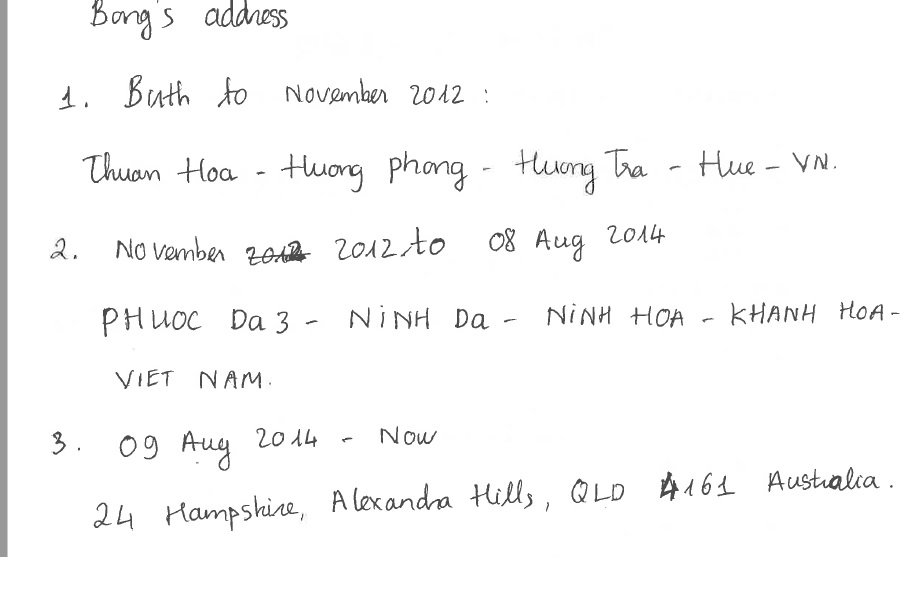 Bong's address
1. Birth to November 2012 :
Thuan Hoa - Huong Phong - Huong Tra - Hue - VN.
2. November 2012 2012 to 08 Aug 2014
PHUOC Da 3 - NiNH Da - NiNH HOA - KHANH HOA -
VIET NAM.
3. 09 Aug 2014 - Now
24 Hampshire, Alexandra Hills, QLD 4161 Australia.